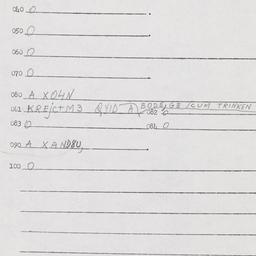 040 0
050 0
060 0
070 0
080 A X04N
081 KREJCTM3 QVID A) BODE,GB /CUM TRINKEN
082 0
083 0
084 0
090 A XANDBU,
100 0